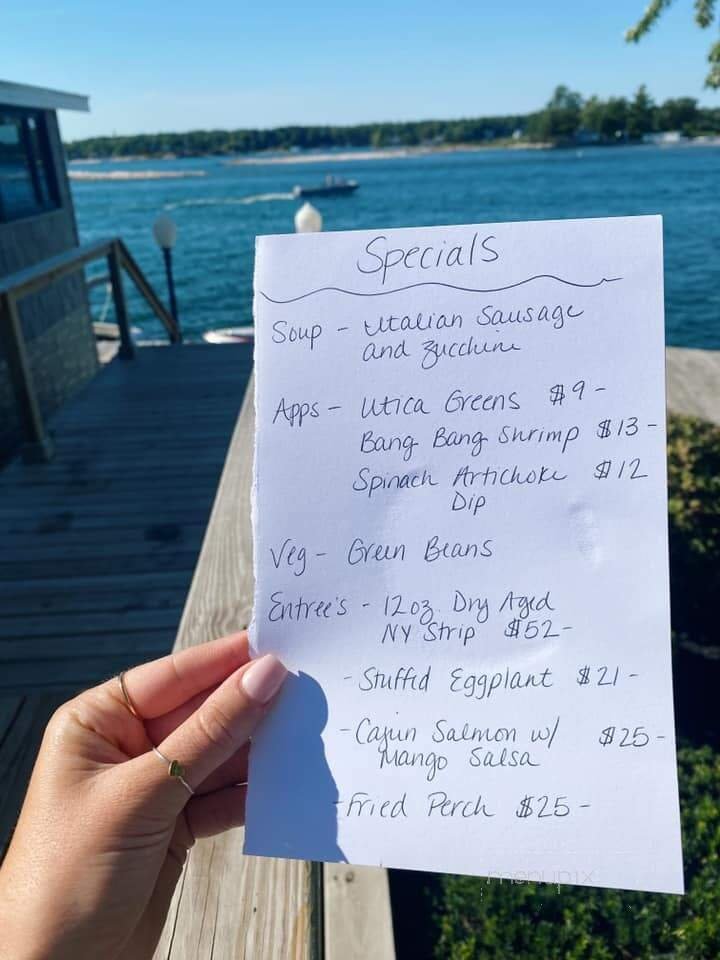 Specials
Soup - Italian Sausage
and Zucchini
Apps - Utica Greens $9-
Bang Bang Shrimp $13-
Spinach Artichoke $12
Dip
Veg - Green Beans
Entree's - 12oz. Dry Aged
NY Strip $52-
- Stuffed Eggplant $21-
- Cajun Salmon w/ $25-
Mango Salsa
- Fried Perch $25-
menupix